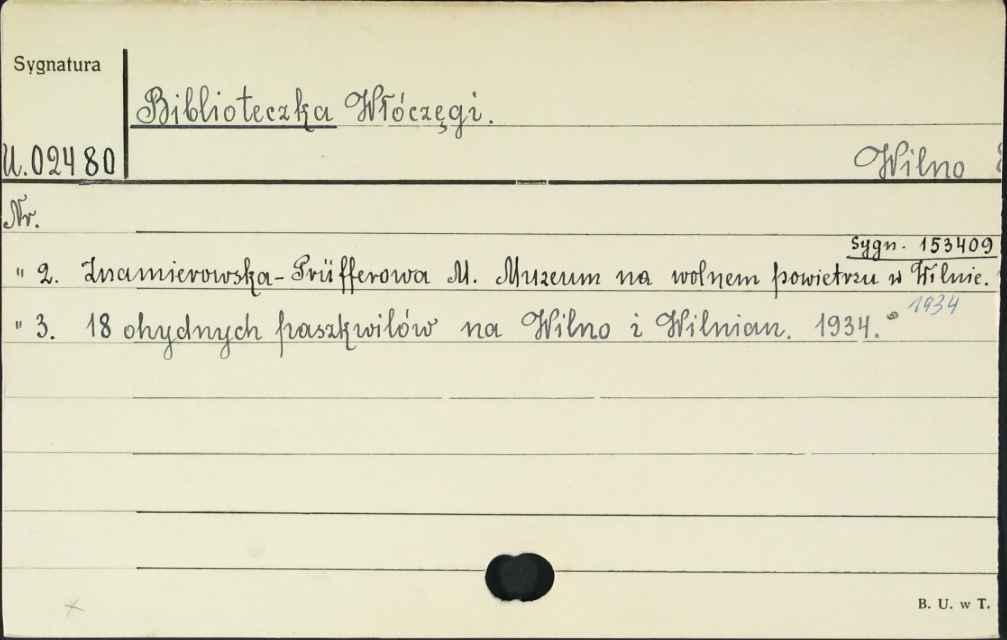 Sygnatura
Biblioteczka Włóczęgi.
U.02480
Wilno
Nr.
Sygn. 153409
" 2. Znamierowska-Prüfferowa M. Muzeum na wolnem powietrzu w Wilnie.
1934
" 3. 18 ohydnych paszkwilów na Wilno i Wilnian. 1934.
B. U. w T.